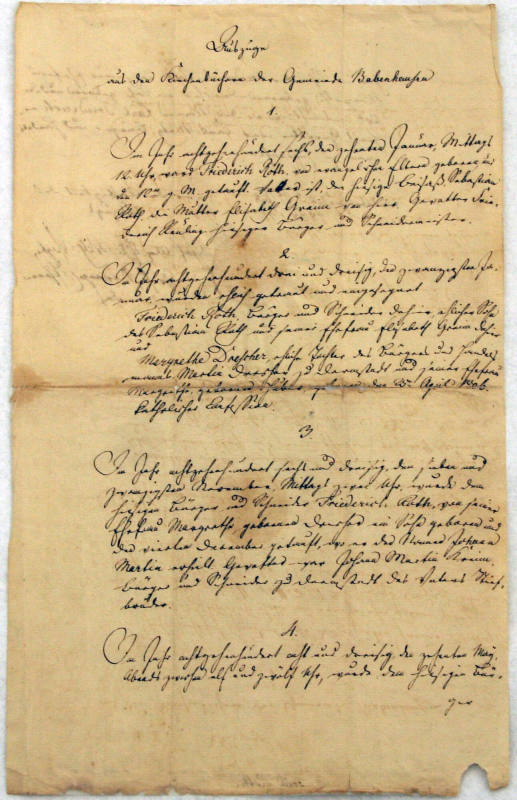 Auszüge
aus den Kirchenbüchern der Gemeinde Babenhausen
1.
Im Jahr achtzehnhundert sechs, den zehenten Jänner, Mittags
12 Uhr, ward Friederich Roth, von evangelischen Eltern geboren und
am 12ten g. M. getauft. Vater ist der hiesige Beisaß Sebastian
Roth, die Mutter Elisabeth Gramm von hier. Gevatter Frie-
derich hiesiger Bürger und Schneidermeister.
2.
Im Jahr achtzehnhundert drei und dreisig, den zwanzigsten Ja-
nuar, wurden ehelich getraut und eingesegnet
Friederich Roth, Bürger und Schneider dahier, ehelicher Sohn
des Sebastian Roth und seiner Ehefrau Elisabeth Gramm dahier
und
Margrethe Drescher, eheliche Tochter des Bürgers und Handels-
manns Martin Drescher zu Darmstadt und seiner Ehefrau
Margrethe, geborene geboren den 25. April 1806.
katholischer Confession.
3.
Im Jahr achtzehnhundert sechs und dreisig, den sieben und
zwanzigsten November, Mittags zwei Uhr, wurde dem
hiesigen Bürger und Schneider Friederich Roth, von seiner
Ehefrau Margrethe geborenen Drescher ein Sohn geboren und
den vierten December getauft, wo er den Namen Johann
Martin erhielt. Gevatter war Johann Martin
Bürger und Schneider zu Darmstadt des Vaters Stief-
bruder.
4.
Im Jahr achtzehnhundert acht und dreisig, den zehenten May,
Abends zwischen elf und zwölf Uhr, wurde dem hiesigen Bür-
ger